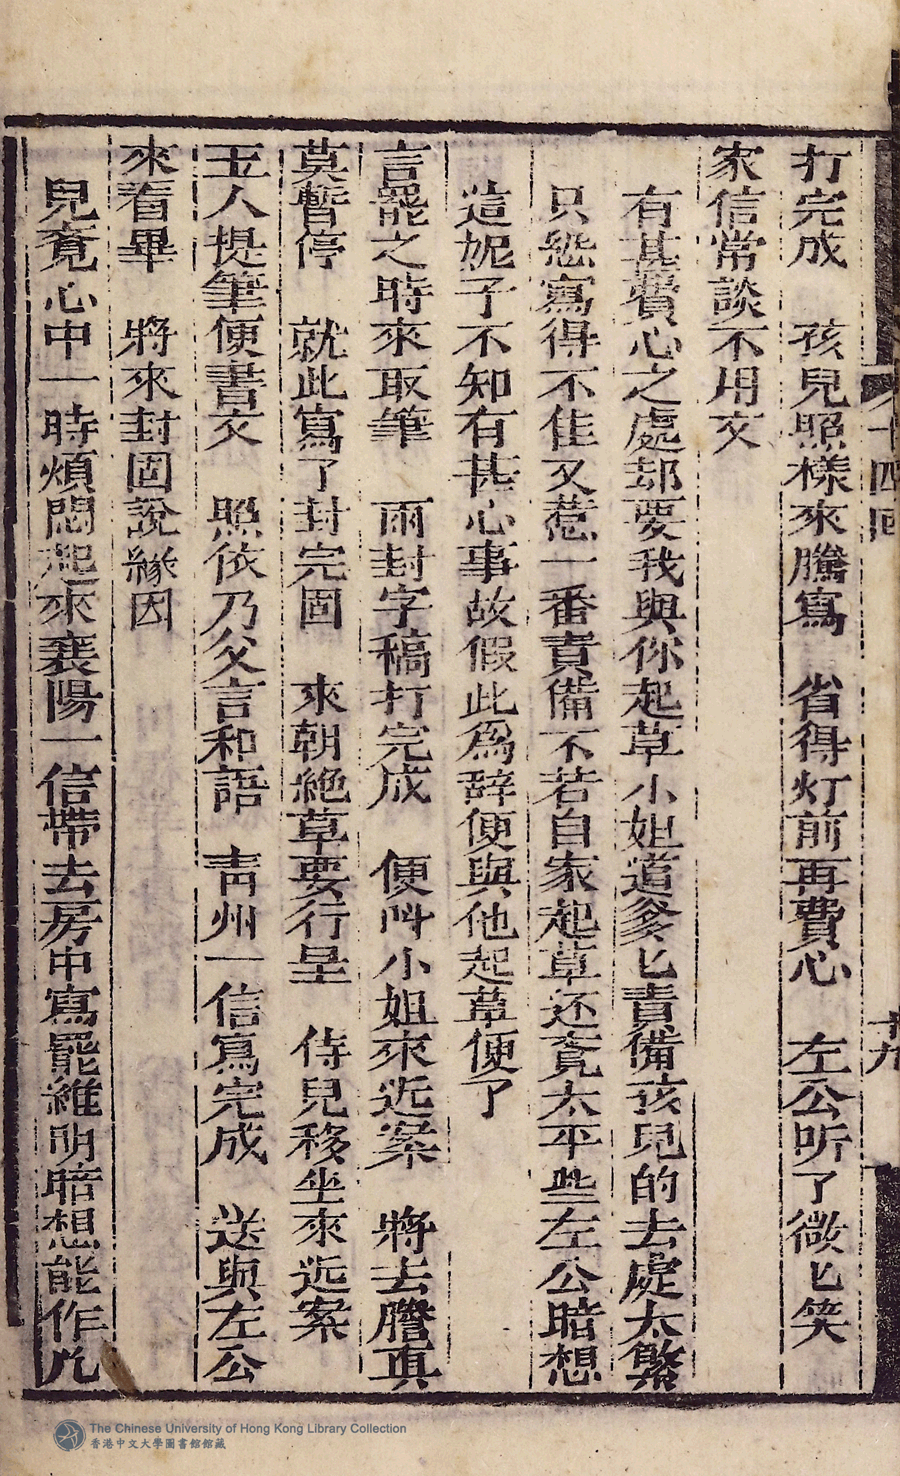 打完成　孩兒照樣來騰寫　省得灯前再費心　左公听了微匕笑
家信常談不用文
有甚費心之處却要我與你起草小姐道爹匕責備孩兒的去處太繁
只愁寫得不佳又惹一番責備不若自家起草还覔太平些左公暗想
這妮子不知有甚心事故假此爲辞便與他起草便了
言罷之時來取筆　兩封字稿打完成　便呌小姐來近案　將去謄真
莫暫停　就此寫了封完固　來朝絶草要行呈　侍兒移坐來近案
玉人提筆便書文　照依乃父言和語　青州一信寫完成　送與左公
來看畢　將來封固說緣因
兒竟心中一時煩悶起來襄陽一信帶去房中寫罷維明暗想能作几
十四回
十九
The Chinese University of Hong Kong Library Collection
香港中文大學圖書館館藏